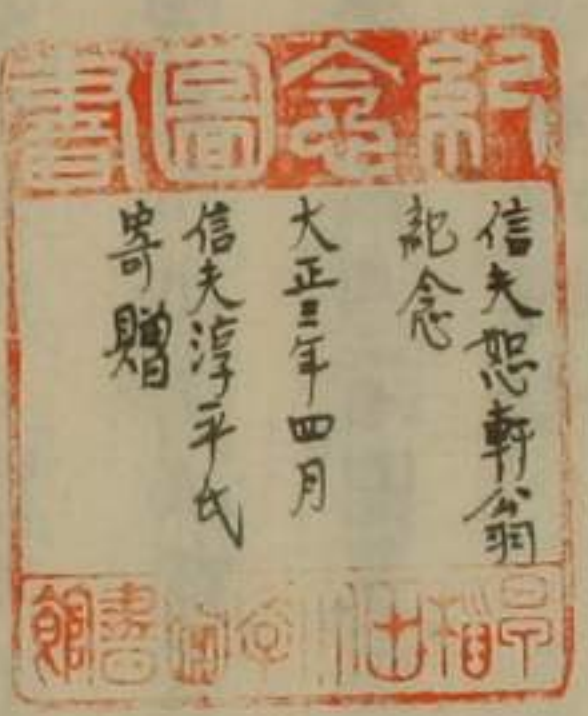 紀念圖書
信夫恕軒翁
記念
大正三年四月
信夫淳平氏
寄贈
早稲田大學圖書館